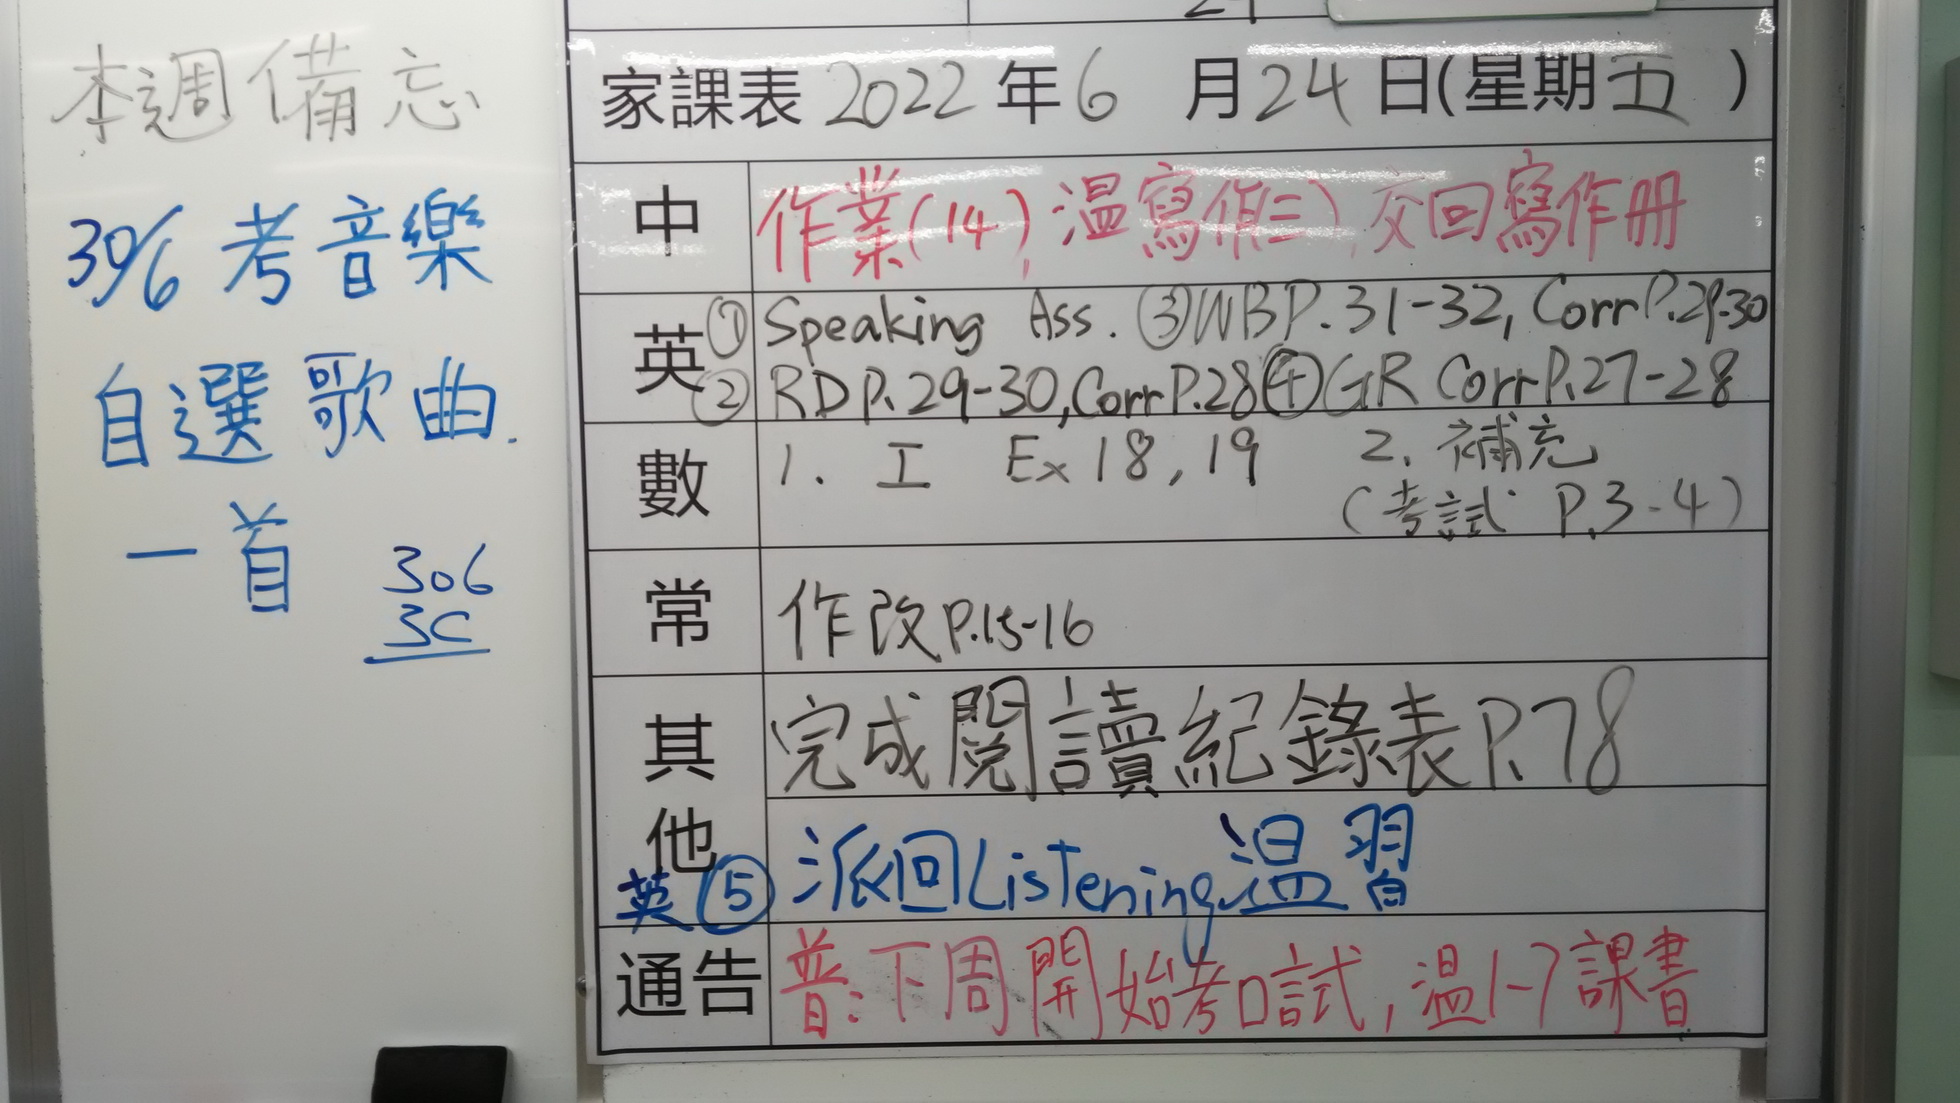 本週備忘
30/6 考音樂
自選歌曲.
一首
306
3C
家課表 2022 年 6 月 24 日(星期五)
中 作業(14), 温寫作(三), 交回寫作冊
英 ① Speaking Ass. ③ WB P.31-32, Corr P.29-30
② RD P.29-30, Corr P.28 ④ GR Corr P.27-28
數 1. 工 Ex 18, 19 2. 補充
(考試 P.3-4)
常 作改 P.15-16
其他 完成閱讀紀錄表 P.78
英 ⑤ 派回 Listening 温習
通告 普:下周開始考口試, 温1-7課書